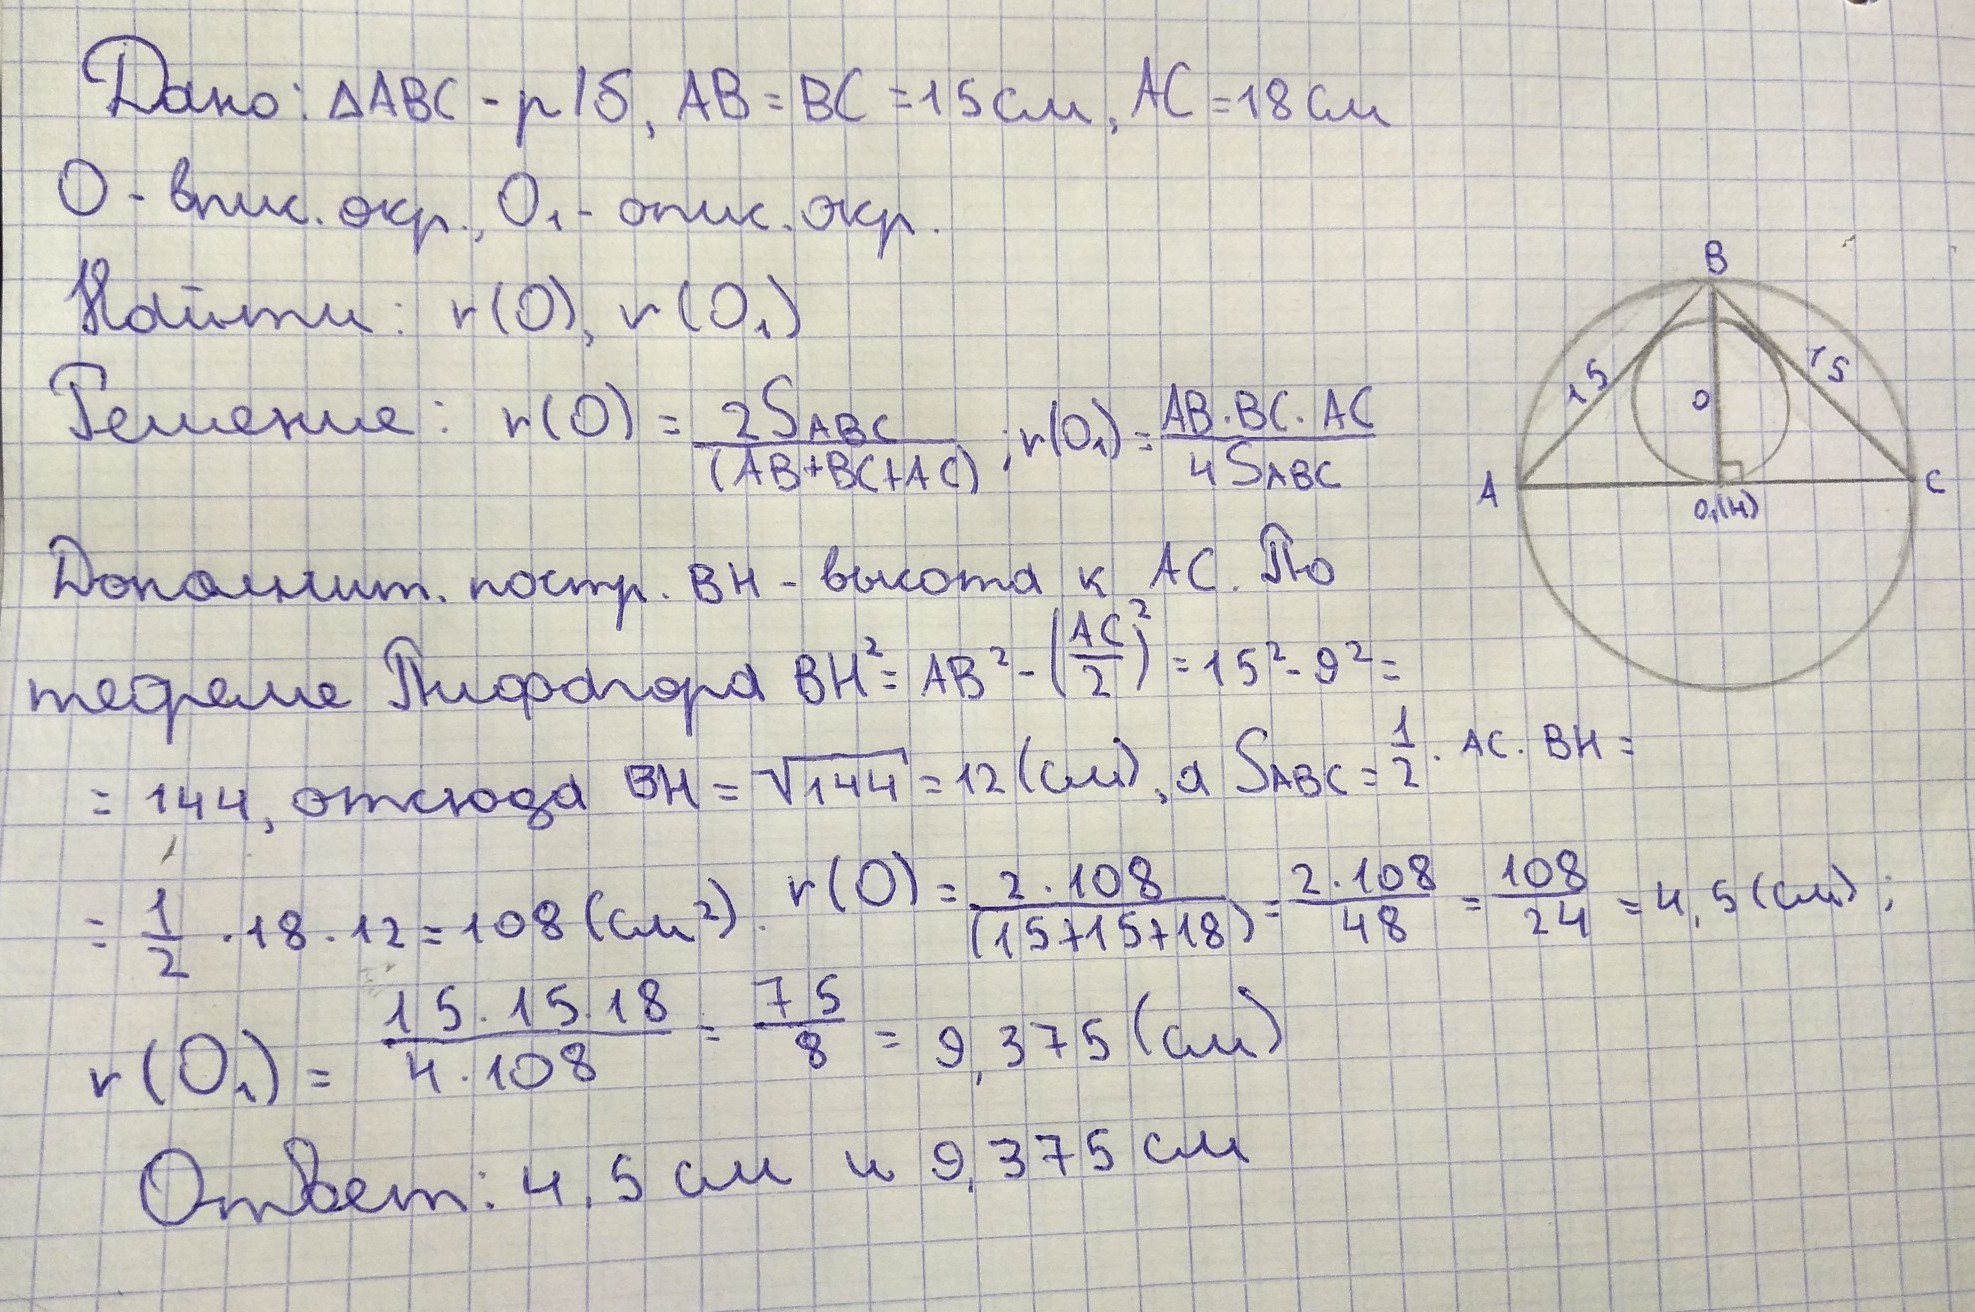 Дано: ΔABC - р/б, AB = BC = 15 см, AC = 18 см
O - впис. окр., O₁ - опис. окр.
Найти: r(O), r(O₁)
Решение: r(O) = 2S_ABC / (AB+BC+AC) ; r(O₁) = AB·BC·AC / 4S_ABC
Дополнит. постр. BH - высота к AC. По
теореме Пифагора BH² = AB² - (AC/2)² = 15² - 9² =
= 144, отсюда BH = √144 = 12 (см), а S_ABC = 1/2 · AC · BH =
= 1/2 · 18 · 12 = 108 (см²). r(O) = 2·108 / (15+15+18) = 2·108 / 48 = 108 / 24 = 4,5 (см);
r(O₁) = 15·15·18 / 4·108 = 75 / 8 = 9,375 (см)
Ответ: 4,5 см и 9,375 см
B
15
15
O
A
C
O₁(H)